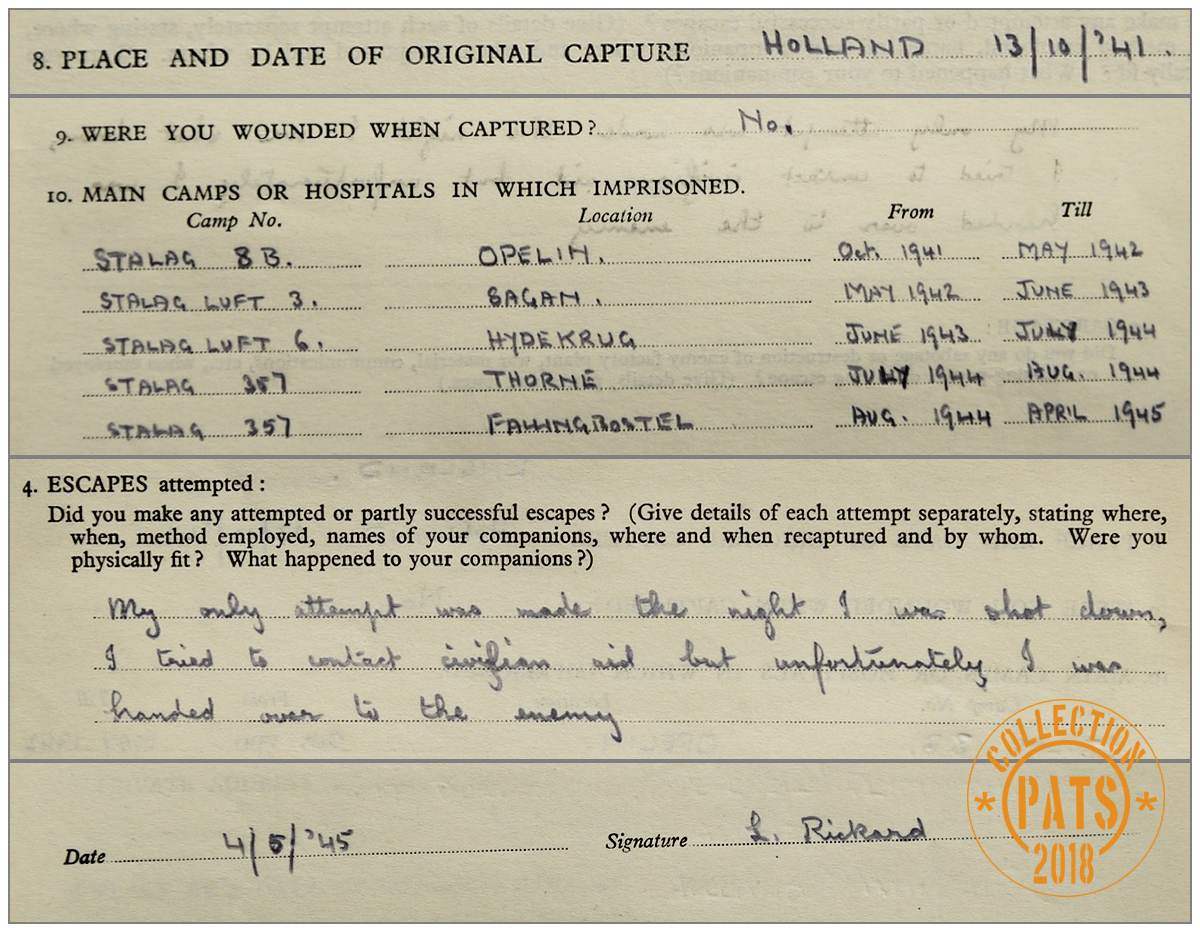 8. PLACE AND DATE OF ORIGINAL CAPTURE HOLLAND 13/10/'41.
9. WERE YOU WOUNDED WHEN CAPTURED? No.
10. MAIN CAMPS OR HOSPITALS IN WHICH IMPRISONED.
Camp No. Location From Till
STALAG 8B. OPELIN. Oct. 1941 MAY 1942
STALAG LUFT 3. SAGAN. MAY 1942 JUNE 1943
STALAG LUFT 6. HYDEKRUG JUNE 1943 JULY 1944
STALAG 357 THORNE JULY 1944 AUG. 1944
STALAG 357 FALLINGBOSTEL AUG. 1944 APRIL 1945
4. ESCAPES attempted :
Did you make any attempted or partly successful escapes ? (Give details of each attempt separately, stating where,
when, method employed, names of your companions, where and when recaptured and by whom. Were you
physically fit ? What happened to your companions ?)
My only attempt was made the night I was shot down,
I tried to contact civilian aid but unfortunately I was
handed over to the enemy
Date 4/5/'45 Signature L. Rickard
COLLECTION
* PATS *
2018